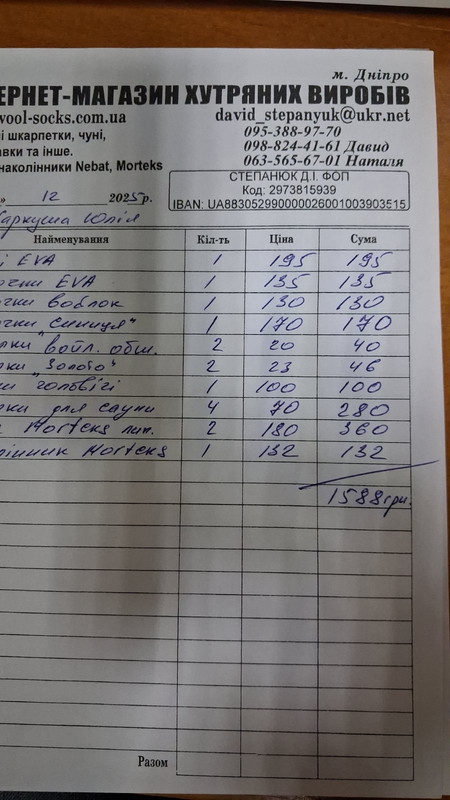 м. Дніпро
ЕРНЕТ-МАГАЗИН ХУТРЯНИХ ВИРОБІВ
wool-socks.com.ua david_stepanyuk@ukr.net
і шкарпетки, чуні, 095-388-97-70
авки та інше. 098-824-41-61 Давид
наколінники Nebat, Morteks 063-565-67-01 Наталя
СТЕПАНЮК Д.І. ФОП
Код: 2973815939
IBAN: UA883052990000026001003903515
» 12 2025р.
аркуша Юлія
Найменування Кіл-ть Ціна Сума
і EVA 1 195 195
очки EVA 1 135 135
очки войлок 1 130 130
очки „Синиця" 1 170 170
лки войл. обш. 2 20 40
рки „Золото" 2 23 46
1 100 100
рки для сауни 4 70 280
Morteks 2 180 360
лінник Morteks 1 132 132
1588грн.
Разом